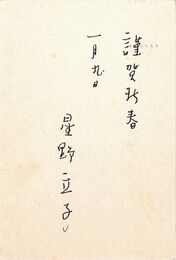 謹賀新春
一月九日
星野立子